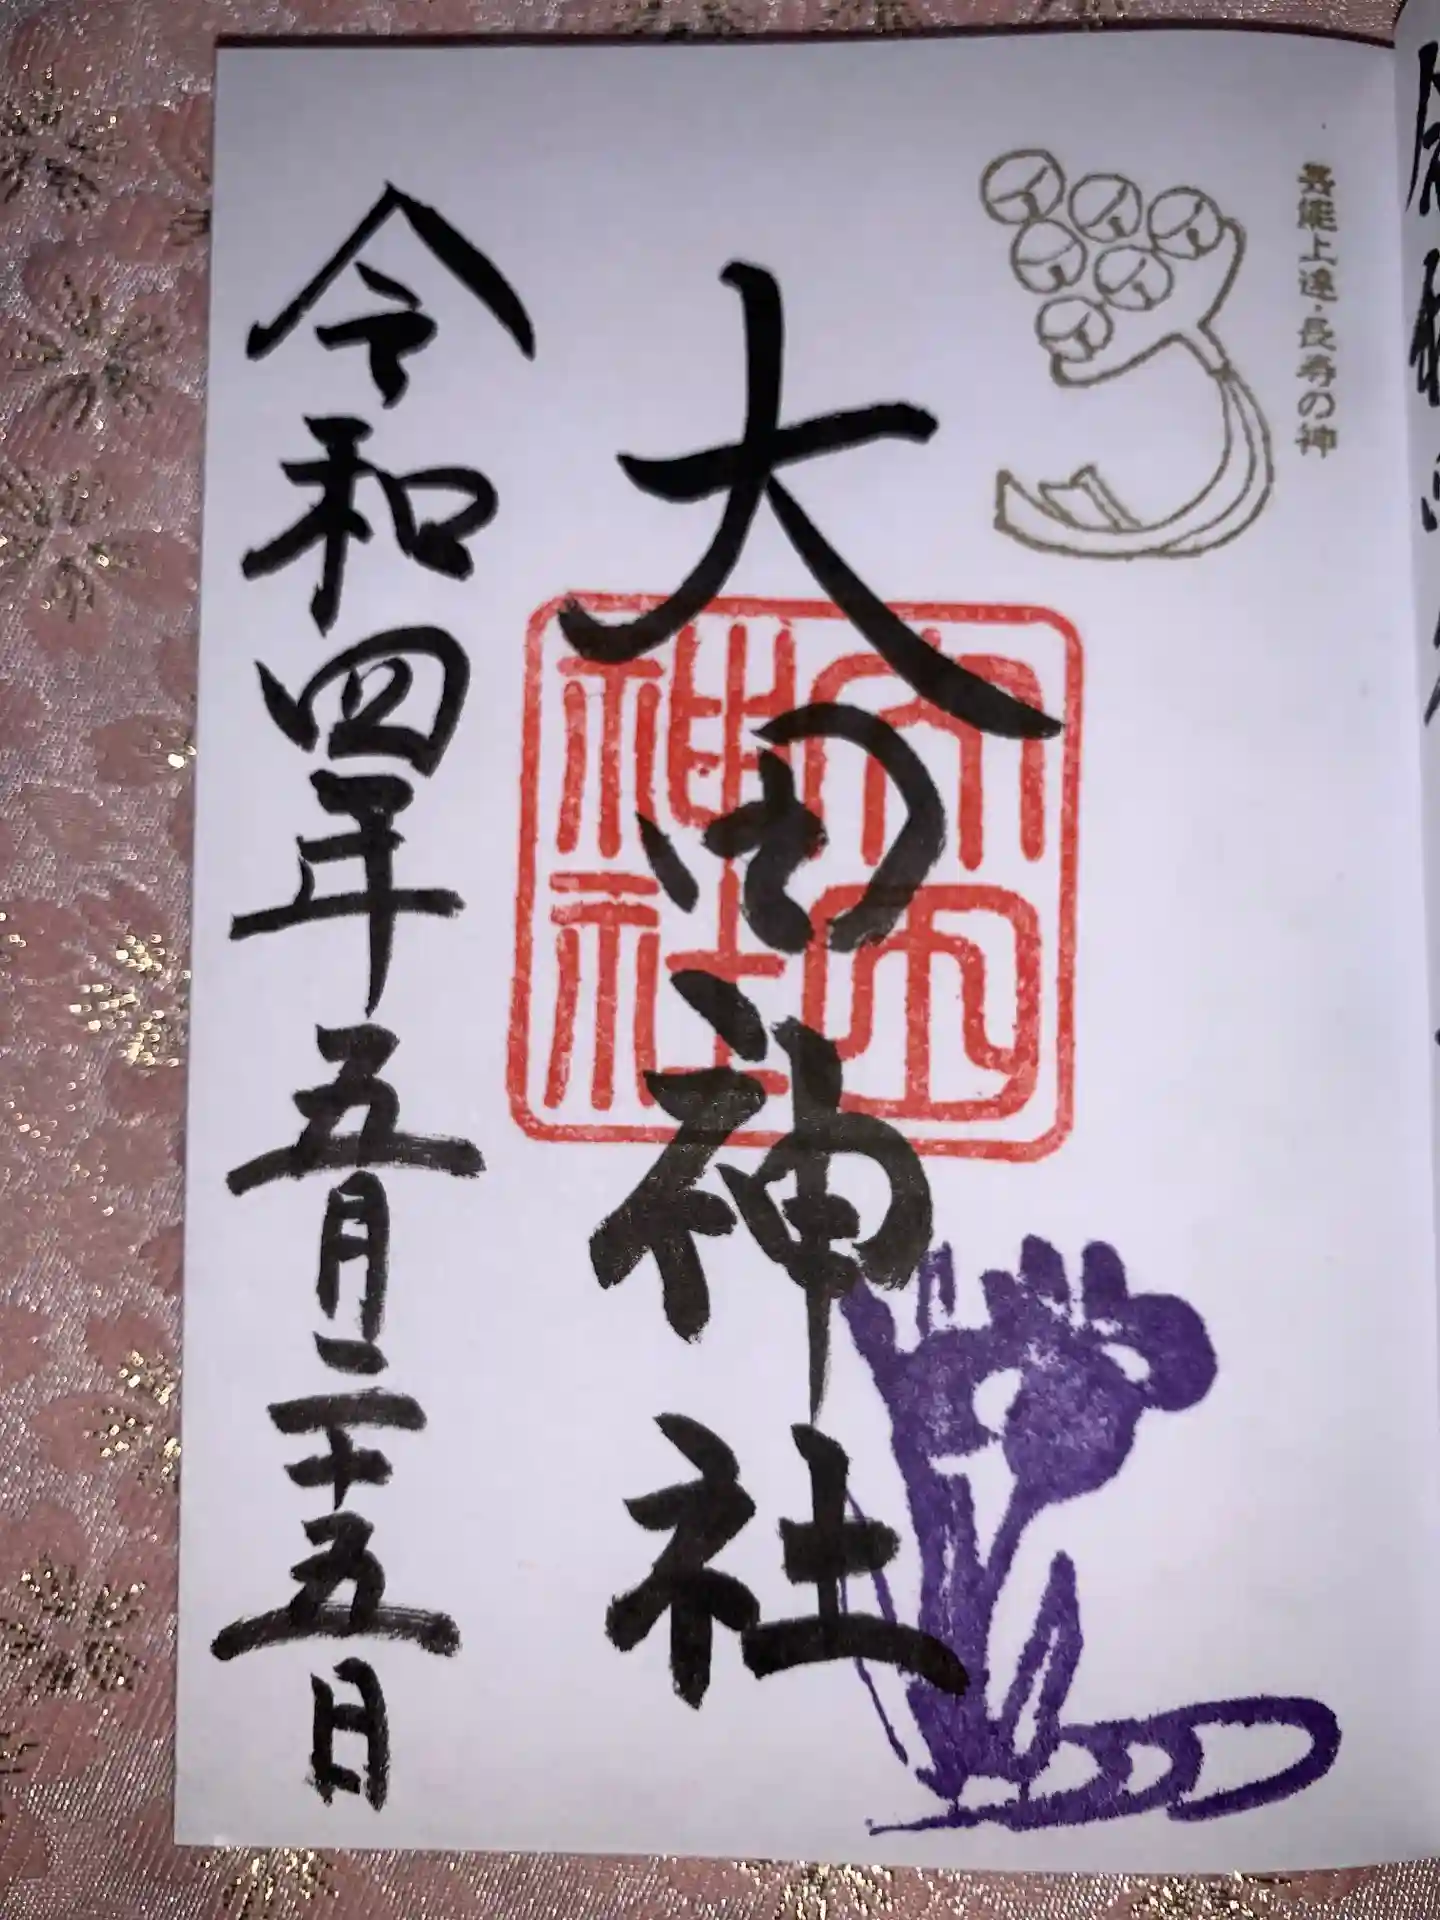 芸能上達・長寿の神
大田神社
大田神社
令和四年五月二十五日